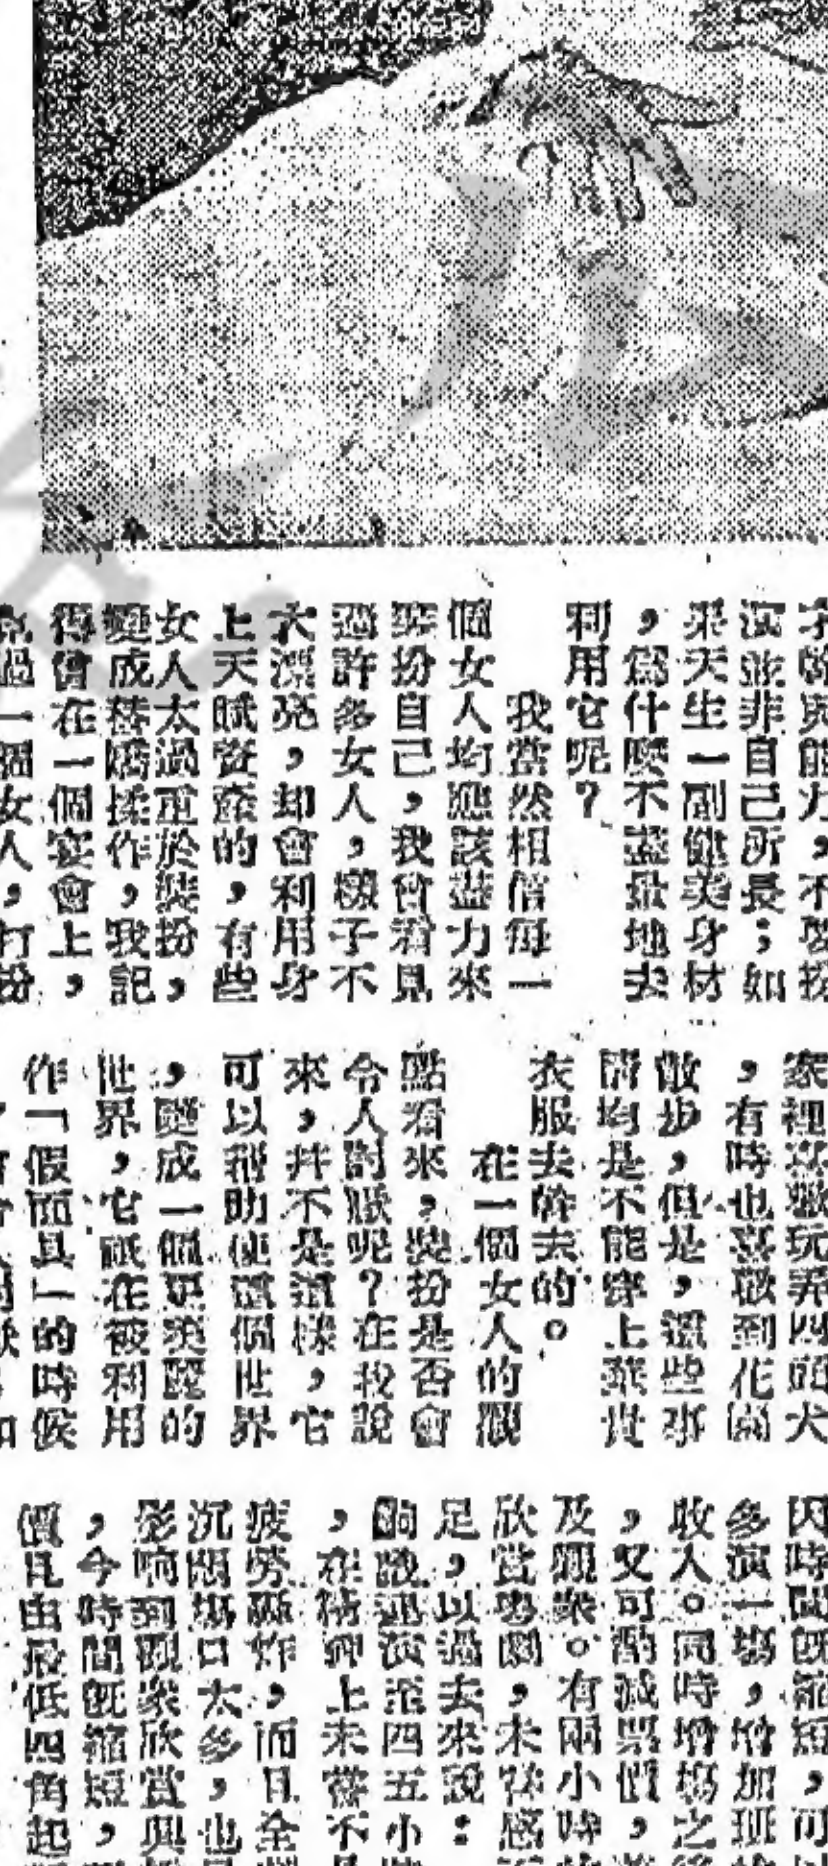 演並非自己所長；如
果天生一副健美身材
，爲什麼不盡量地去
利用它呢？
我當然相信每一
個女人均應該盡力來
裝扮自己，我曾看見
過許多女人，樣子不
大漂亮，却會利用身
上天賦資產的，有些
女人太過重於裝扮，
變成替嬌揉作，我記
得曾在一個宴會上，
過一個女人，打扮
家裡喜歡玩弄四頭犬
，有時也喜歡到花園
散步，但是，這些事
情均是不能穿上華貴
衣服去幹去的。
在一個女人的觀
點看來，裝扮是否會
令人討厭呢？在我說
來，幷不是這樣，它
可以帮助使這個世界
，變成一個更美麗的
世界，它祇在被利用
作「假面具」的時候
因時間既縮短，可
多演一場，增加班
收入。同時增場之後
，又可酌減票價，
及觀衆。有兩小時
欣賞粵劇，未 感
足，以過去來說：
齣戲 演 四五小
，在精神上未嘗不
疲勞 炸，而且全
沉悶場口太多，也
影响到觀衆欣賞興
，今時間既縮短，
價且由最低四角起